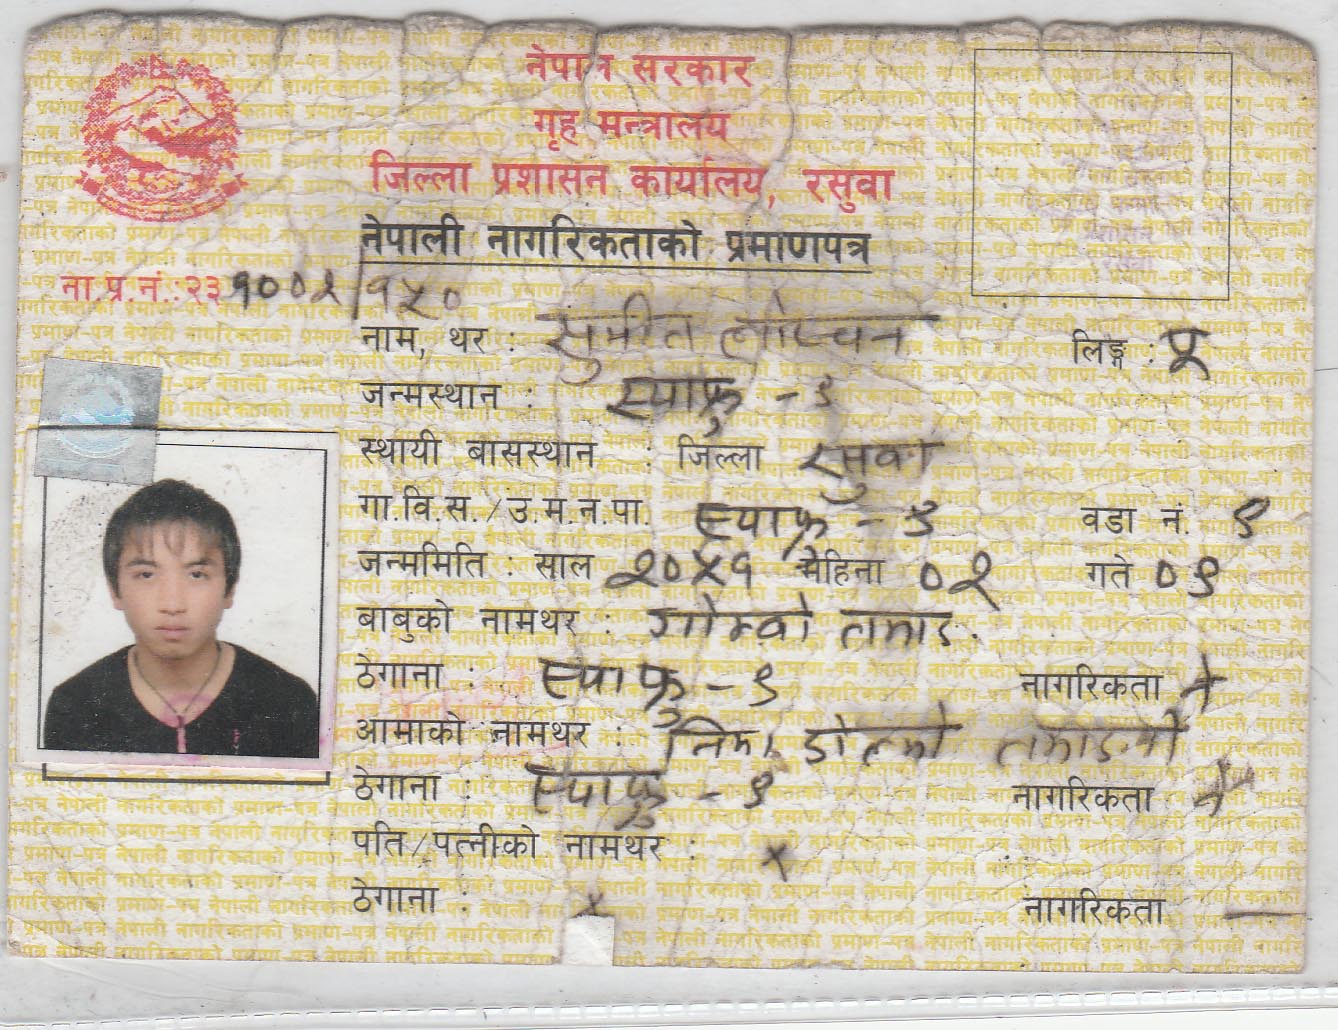 नेपाल सरकार
गृह मन्त्रालय
जिल्ला प्रशासन कार्यालय, रसुवा
नेपाली नागरिकताको प्रमाणपत्र
ना.प्र.नं.:२३१००२/१५०
नाम, थर : लिङ्ग : पु
जन्मस्थान : स्याफ्रु - ९
स्थायी बासस्थान : जिल्ला रसुवा
गा.वि.स./उ.म.न.पा. स्याफ्रु - ९ वडा नं. ९
जन्ममिति : साल २०५१ महिना ०२ गते ०९
बाबुको नामथर : तामाङ
ठेगाना : स्याफ्रु - ९ नागरिकता ने
आमाको नामथर : निमा डोल्मो तामाङनी
ठेगाना : स्याफ्रु - ९ नागरिकता ने
पति/पत्नीको नामथर : x
ठेगाना : x नागरिकता —